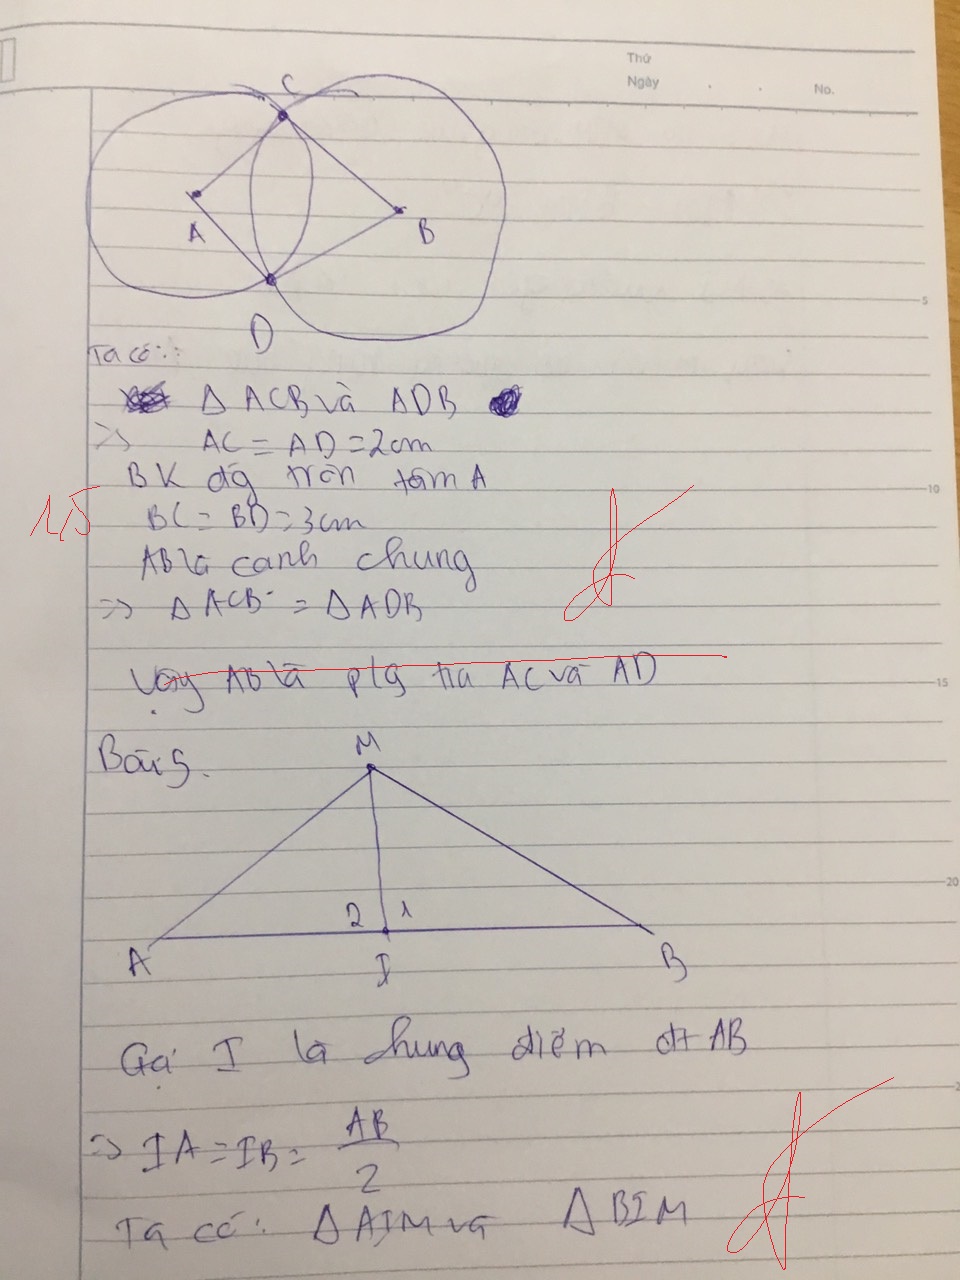 Thứ
Ngày . . No.
C
A
B
D
5
Ta có:
Δ ACB và ADB
=> AC = AD = 2cm
BK đg tròn tâm A
10
1,5
BC = BD = 3cm
AB là cạnh chung
=> Δ ACB = Δ ADB
Vậy AB là plg tia AC và AD
15
Bài 5.
M
20
2 1
A
I
B
Gọi I là chung điểm đt AB
=> IA = IB = AB
2
Ta có: Δ AIM và Δ BIM